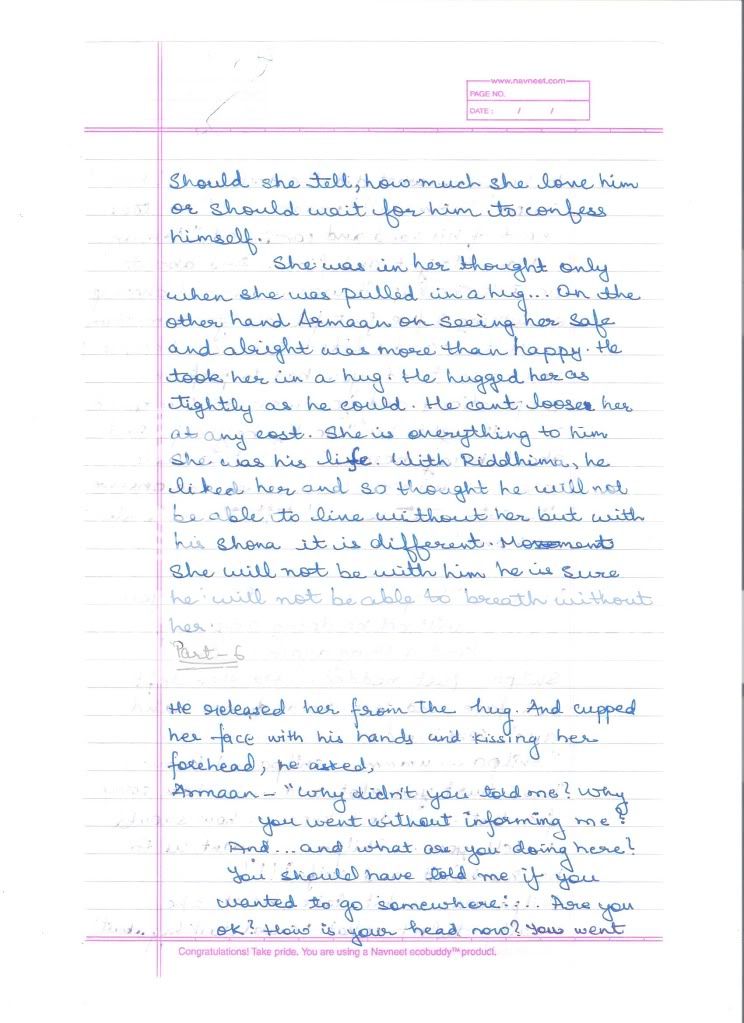 www.navneet.com
PAGE NO.
DATE : / /
Should she tell, how much she love him
or should wait for him to confess
himself..
She was in her thought only
when she was pulled in a hug... On the
other hand Armaan on seeing her safe
and alright was more than happy. He
took her in a hug. He hugged her as
tightly as he could. He cant looses her
at any cost. She is everything to him
She was his life. With Riddhima, he
liked her and so thought he will not
be able to line without her but with
his Shona it is different. Movement
She will not be with him he is sure
he will not be able to breath without
her.
Part-6
He released her from the hug. And cupped
her face with his hands and kissing her
forehead, he asked,
Armaan - "Why didn't you told me? Why
you went without informing me?
And... and what are you doing here?
You should have told me if you
wanted to go somewhere.... Are you
ok? How is your head now? You went
Congratulations! Take pride. You are using a Navneet ecobuddy™ product.